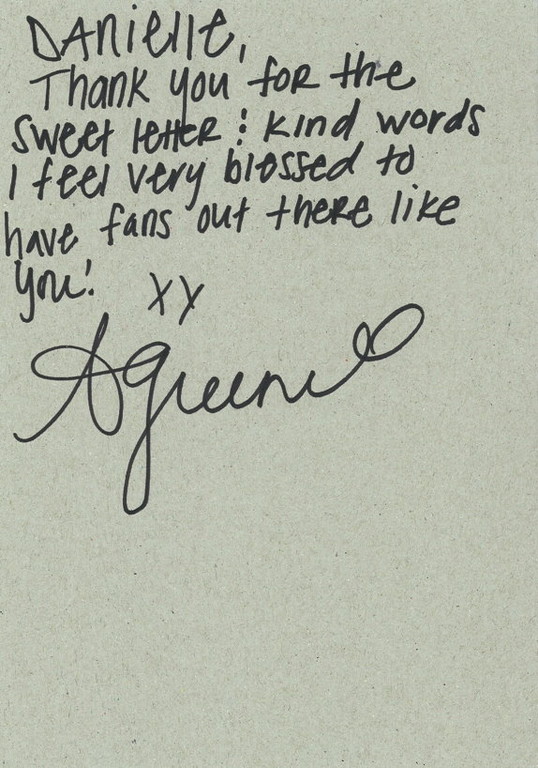 DANIELLE,
Thank you for the
sweet letter & kind words
I feel very blessed to
have fans out there like
you!
XX
AGreene